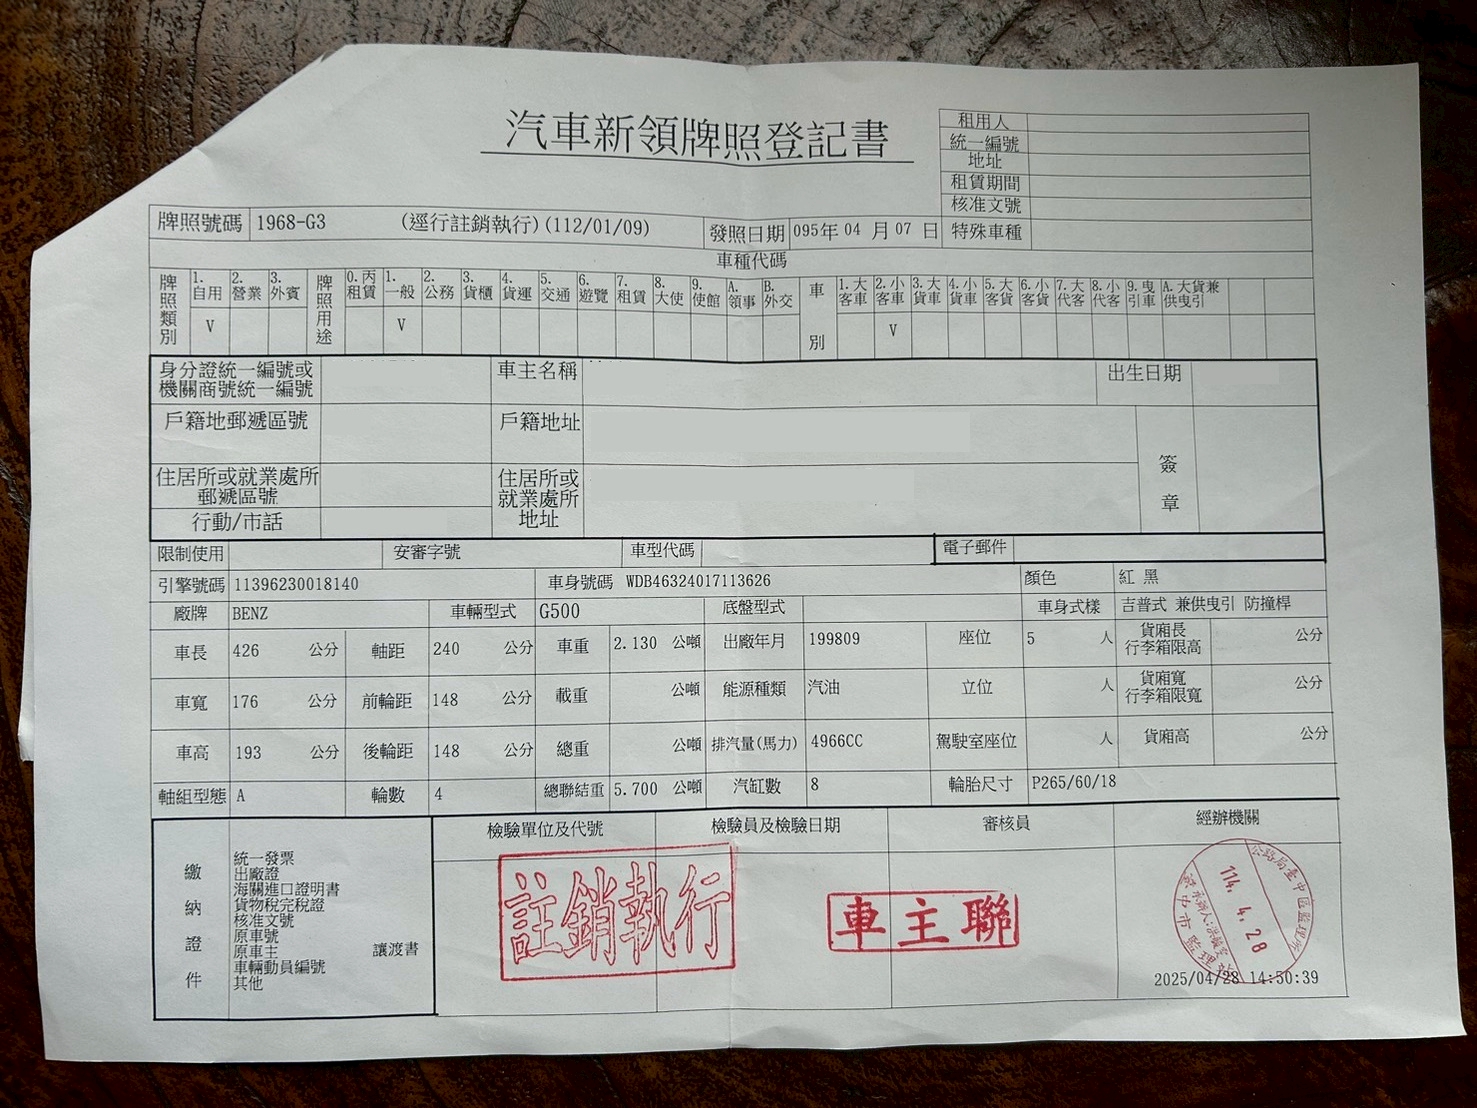 汽車新領牌照登記書
租用人
統一編號
地址
租賃期間
核准文號
牌照號碼 1968-G3 (逕行註銷執行)(112/01/09) 發照日期 095年 04 月 07 日 特殊車種
車種代碼
牌照類別 1.自用 2.營業 3.外賓 牌照用途 0.丙租賃 1.一般 2.公務 3.貨櫃 4.貨運 5.交通 6.遊覽 7.租賃 8.大使 9.使館 A.領事 B.外交 車別 1.大客車 2.小客車 3.大貨車 4.小貨車 5.大客貨 6.小客貨 7.大代客 8.小代客 9.曳引車 A.大貨兼供曳引
V V V
身分證統一編號或機關商號統一編號 車主名稱 出生日期
戶籍地郵遞區號 戶籍地址 簽章
住居所或就業處所郵遞區號 住居所或就業處所地址
行動/市話
限制使用 安審字號 車型代碼 電子郵件
引擎號碼 11396230018140 車身號碼 WDB46324017113626 顏色 紅 黑
廠牌 BENZ 車輛型式 G500 底盤型式 車身式樣 吉普式 兼供曳引 防撞桿
車長 426 公分 軸距 240 公分 車重 2.130 公噸 出廠年月 199809 座位 5 人 貨廂長行李箱限高 公分
車寬 176 公分 前輪距 148 公分 載重 公噸 能源種類 汽油 立位 人 貨廂寬行李箱限寬 公分
車高 193 公分 後輪距 148 公分 總重 公噸 排汽量(馬力) 4966CC 駕駛室座位 人 貨廂高 公分
軸組型態 A 輪數 4 總聯結重 5.700 公噸 汽缸數 8 輪胎尺寸 P265/60/18
檢驗單位及代號 檢驗員及檢驗日期 審核員 經辦機關
繳納證件
統一發票
出廠證
海關進口證明書
貨物稅完稅證
核准文號
原車號
原車主 讓渡書
車輛動員編號
其他
註銷執行
車主聯
公路局臺中區監理所
114. 4. 28
臺中市監理站
2025/04/28 14:50:39